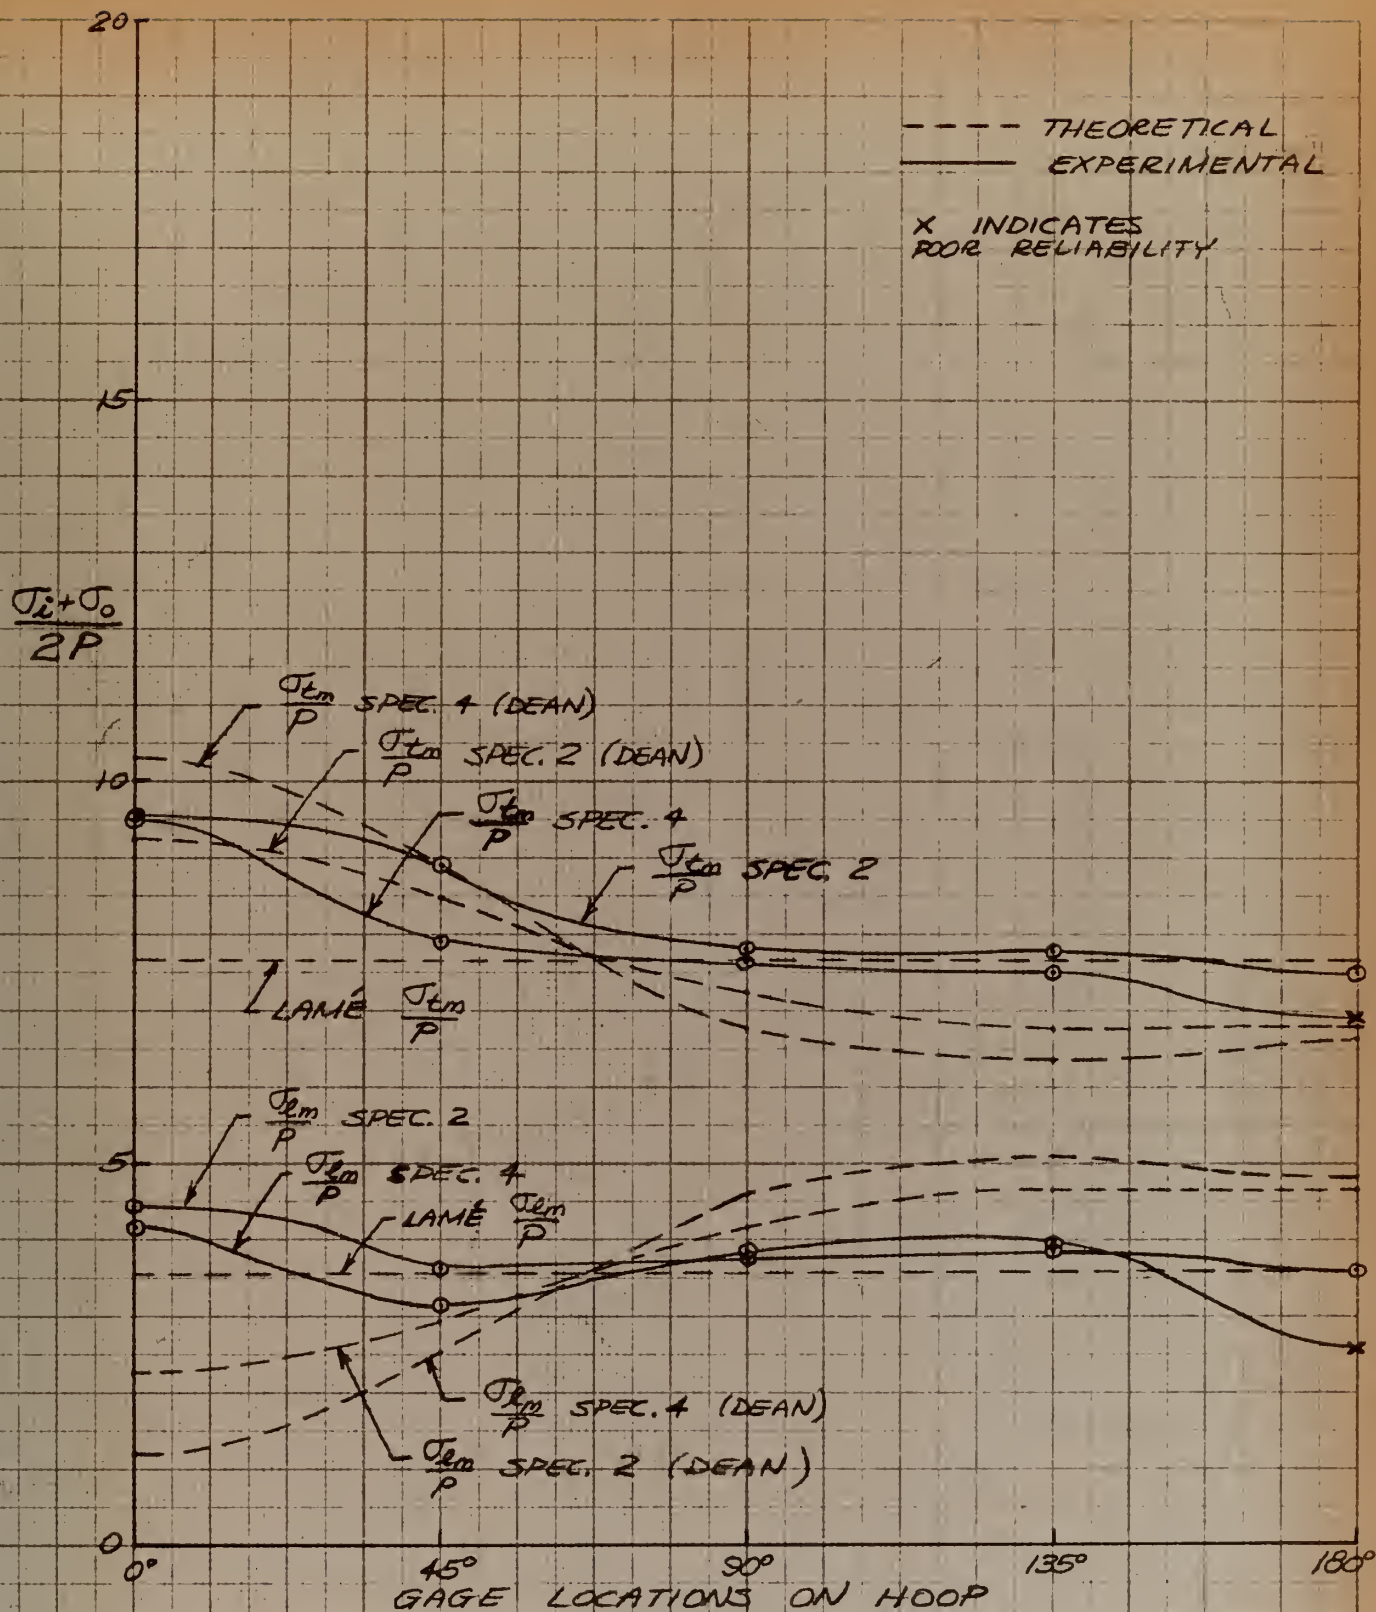 20
--- THEORETICAL
— EXPERIMENTAL
X INDICATES
POOR RELIABILITY
15
σi+σo
2P
σtm/P SPEC. 4 (DEAN)
σtm/P SPEC. 2 (DEAN)
10
σtm/P SPEC. 4
σtm/P SPEC. 2
LAMÉ σtm/P
σlm/P SPEC. 2
5
σlm/P SPEC. 4
LAMÉ σlm/P
σlm/P SPEC. 4 (DEAN)
σlm/P SPEC. 2 (DEAN)
0
0° 45° 90° 135° 180°
GAGE LOCATIONS ON HOOP